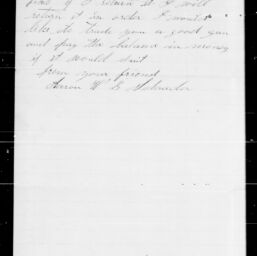 fine if I return it I will
return it in order I would
like to trade you a good gun
and pay the balance in money
if it would suit
from your friend
Aaron W E